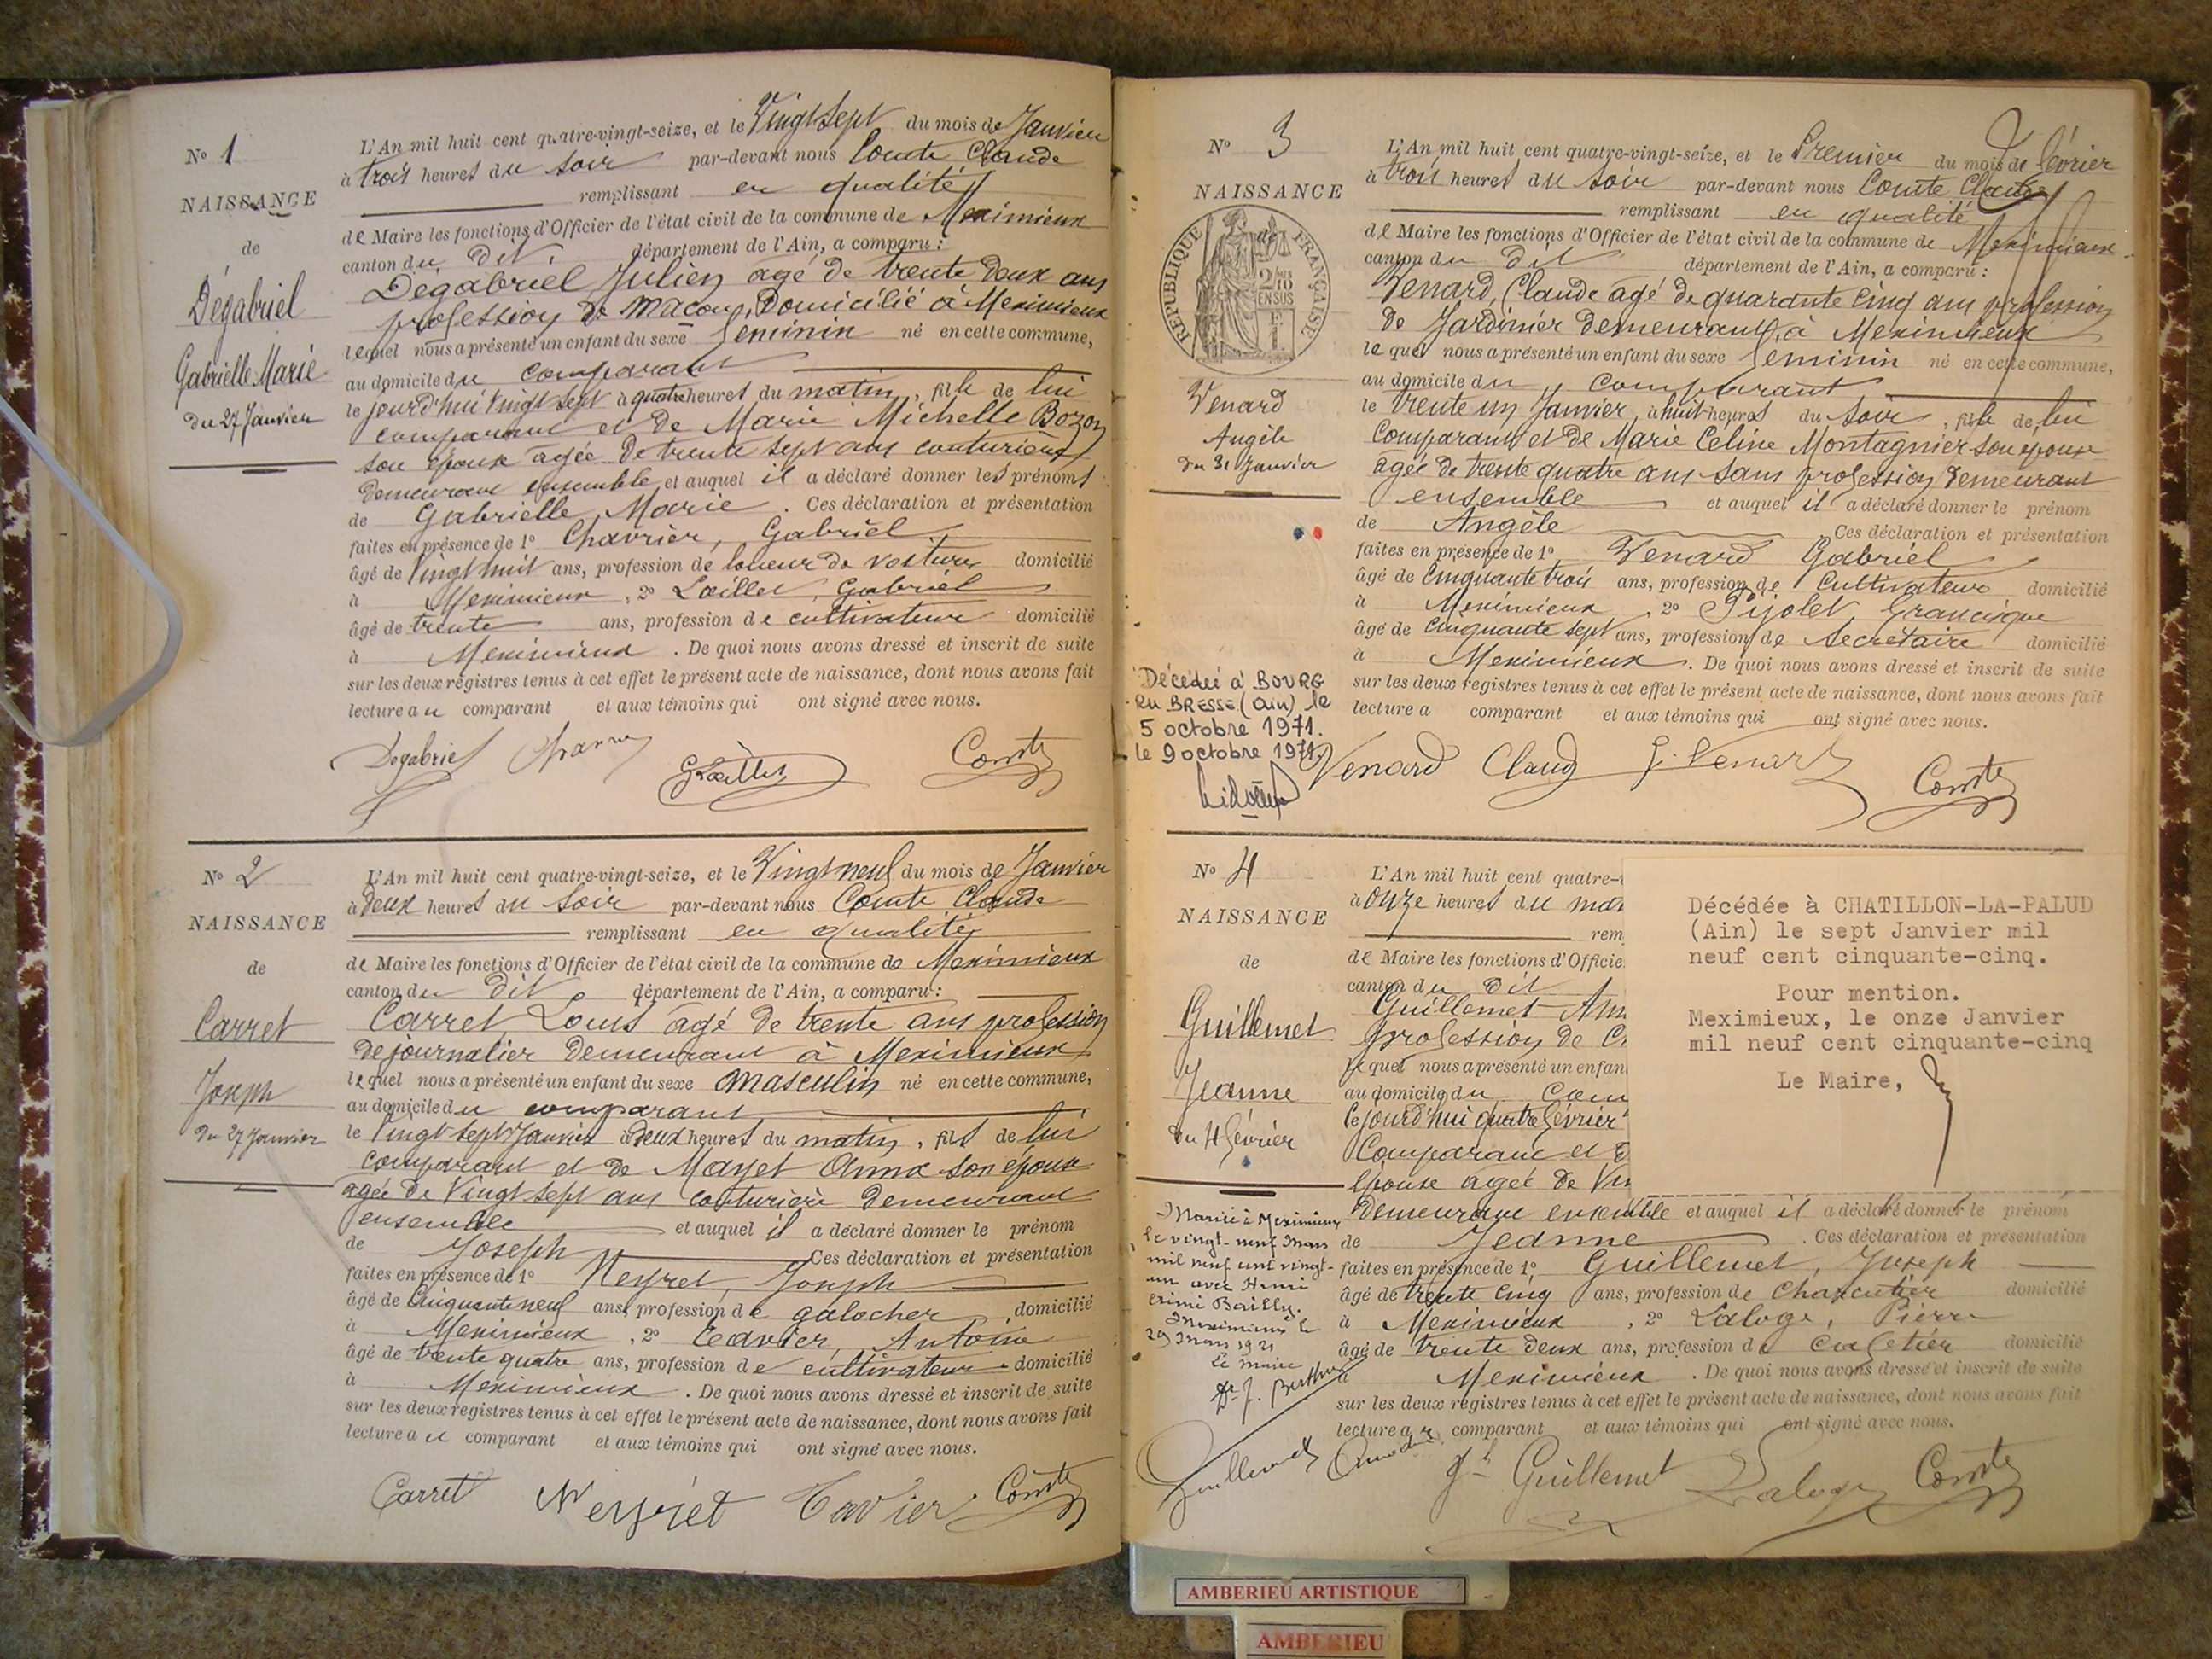 N° 1
NAISSANCE
de
Dégabriel
Gabrielle Marie
du 27 Janvier
L'An mil huit cent quatre-vingt-seize, et le Vingt sept du mois de Janvier
à trois heures du soir par-devant nous Comte Claude
remplissant en qualité
de Maire les fonctions d'Officier de l'état civil de la commune de Meximieux
canton du dit département de l'Ain, a comparu :
Dégabriel Julien agé de trente deux ans
profession de maçon, Domicilié à Meximieux
lequel nous a présenté un enfant du sexe feminin né en cette commune,
au domicile du comparant
le jourd'hui vingt sept à quatre heures du matin, fille de lui
comparant et de Marie Michelle Bozon
son épouse agée de trente sept ans couturière
demeurant ensemble et auquel il a déclaré donner les prénoms
de Gabrielle Marie. Ces déclaration et présentation
faites en présence de 1° Chavrier, Gabriel
âgé de Vingt huit ans, profession de loueur de voitures domicilié
à Meximieux, 2° Lœillet, Gabriel
âgé de trente ans, profession de cultivateur domicilié
à Meximieux. De quoi nous avons dressé et inscrit de suite
sur les deux régistres tenus à cet effet le présent acte de naissance, dont nous avons fait
lecture au comparant et aux témoins qui ont signé avec nous.
Dégabriel GLœillet Comte
N° 2
NAISSANCE
de
Carret
Joseph
du 27 Janvier
L'An mil huit cent quatre-vingt-seize, et le Vingt neuf du mois de Janvier
à deux heures du soir par-devant nous Comte Claude
remplissant en qualité
de Maire les fonctions d'Officier de l'état civil de la commune de Meximieux
canton du dit département de l'Ain, a comparu :
Carret Louis agé de trente ans profession
de journalier demeurant à Meximieux
lequel nous a présenté un enfant du sexe masculin né en cette commune,
au domicile du comparant
le Vingt sept Janvier à deux heures du matin, fils de lui
comparant et de Mayet Anna son épouse
agée de Vingt sept ans couturière demeurant
ensemble et auquel il a déclaré donner le prénom
de Joseph Ces déclaration et présentation
faites en présence de 1° Neyret, Joseph
âgé de Cinquante neuf ans, profession de galocher, domicilié
à Meximieux, 2° Tavier, Antoine
âgé de trente quatre ans, profession de cultivateur domicilié
à Meximieux. De quoi nous avons dressé et inscrit de suite
sur les deux régistres tenus à cet effet le présent acte de naissance, dont nous avons fait
lecture au comparant et aux témoins qui ont signé avec nous.
Carret Neyret Tavier Comte
N° 3
NAISSANCE
de
RÉPUBLIQUE FRANÇAISE
2/10 EN SUS
Venard
Angèle
du 31 Janvier
L'An mil huit cent quatre-vingt-seize, et le Premier du mois de février
à trois heures du soir par-devant nous Comte Claude
remplissant en qualité
de Maire les fonctions d'Officier de l'état civil de la commune de Meximieux
canton du dit département de l'Ain, a comparu :
Venard, Claude agé de quarante cinq ans profession
de Jardinier demeurant à Meximieux
lequel nous a présenté un enfant du sexe feminin né en cette commune,
au domicile du comparant
le trente un Janvier à huit heures du soir, fille de lui
comparant et de Marie Celine Montagnier son épouse
agée de trente quatre ans sans profession demeurant
ensemble et auquel il a déclaré donner le prénom
de Angèle Ces déclaration et présentation
faites en présence de 1° Venard Gabriel
âgé de Cinquante trois ans, profession de Cultivateur domicilié
à Meximieux, 2° Pijolet, Francisque
âgé de Cinquante sept ans, profession de Secretaire domicilié
à Meximieux. De quoi nous avons dressé et inscrit de suite
sur les deux régistres tenus à cet effet le présent acte de naissance, dont nous avons fait
lecture a comparant et aux témoins qui ont signé avec nous.
Décédée à BOURG
EN BRESSE (Ain) le
5 octobre 1971.
le 9 octobre 1971.
Venard Claud G. Venard Comte
N° 4
NAISSANCE
de
Guillemet
Jeanne
du 4 février
L'An mil huit cent quatre-
à onze heures du
de Maire les fonctions d'Officie
canton du dit
Guillemet
profession de
lequel nous a présenté un enfan
au domicile du
le jourd'hui quatre février
Comparant et
épouse agée de
demeurant ensemble et auquel il a déclaré donner le prénom
de Jeanne. Ces déclaration et présentation
faites en présence de 1° Guillemet, Joseph
âgé de trente cinq ans, profession de Charcutier domicilié
à Meximieux, 2° Laloge, Pierre
âgé de trente deux ans, profession de cafetier domicilié
à Meximieux. De quoi nous avons dressé et inscrit de suite
sur les deux régistres tenus à cet effet le présent acte de naissance, dont nous avons fait
lecture au comparant et aux témoins qui ont signé avec nous.
Décédée à CHATILLON-LA-PALUD
(Ain) le sept Janvier mil
neuf cent cinquante-cinq.
Pour mention.
Meximieux, le onze Janvier
mil neuf cent cinquante-cinq
Le Maire,
Mariée à Meximieux
le vingt-neuf Mars
mil neuf cent vingt-
un avec Henri
Rémi Bailly.
Meximieux le
29 Mars 1921
Le Maire
Dr J. Berthier
Guillemet Jh Guillemet Laloge Comte
AMBERIEU ARTISTIQUE
AMBERIEU